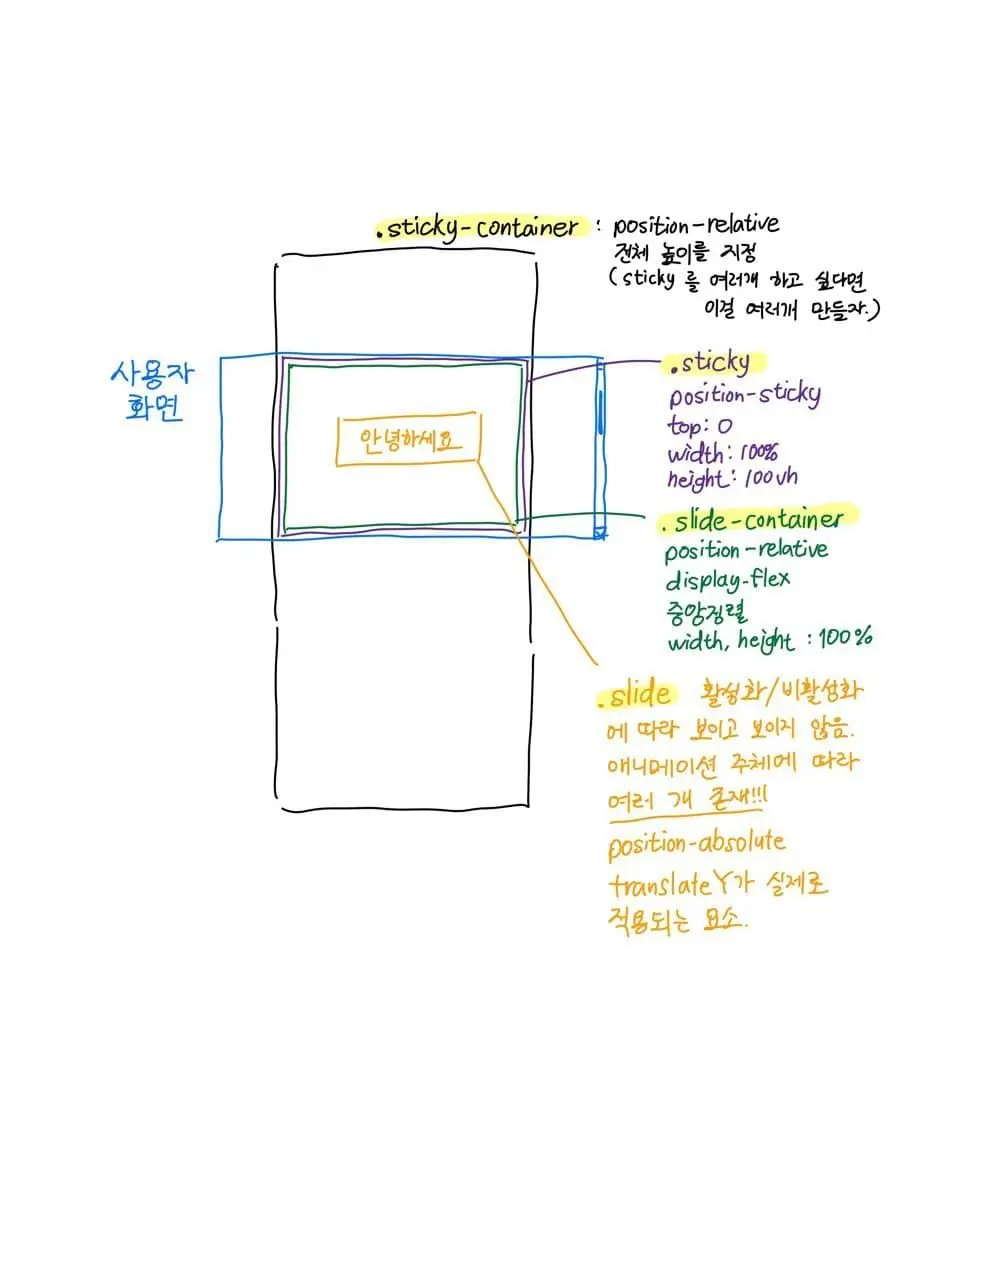 .sticky-container : position-relative
전체 높이를 지정
(sticky를 여러개 하고 싶다면
이걸 여러개 만들자.)
사용자
화면
안녕하세요
.sticky
position-sticky
top: 0
width: 100%
height: 100vh
.slide-container
position-relative
display-flex
중앙정렬
width, height : 100%
.slide 활성화/비활성화
에 따라 보이고 보이지 않음.
애니메이션 주체에 따라
여러 개 존재!!!
position-absolute
translateY가 실제로
적용되는 요소.